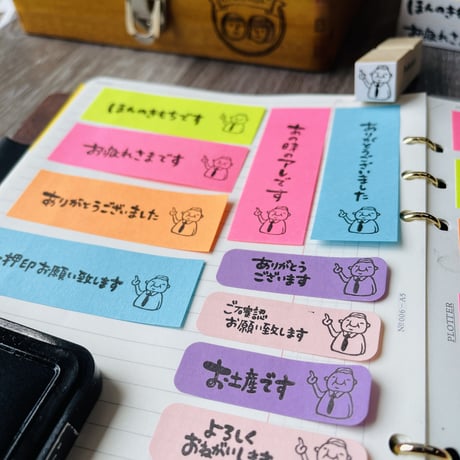 ほんのきもちです
お疲れさまです
ありがとうございました
押印お願い致します
あの時のアレです
ありがとうございました
ありがとう
ございます
ご確認
お願い致します
お土産です
よろしく
おねがいします
ほんのきもち
お疲れさまです
No 006-A5
PLOTTER